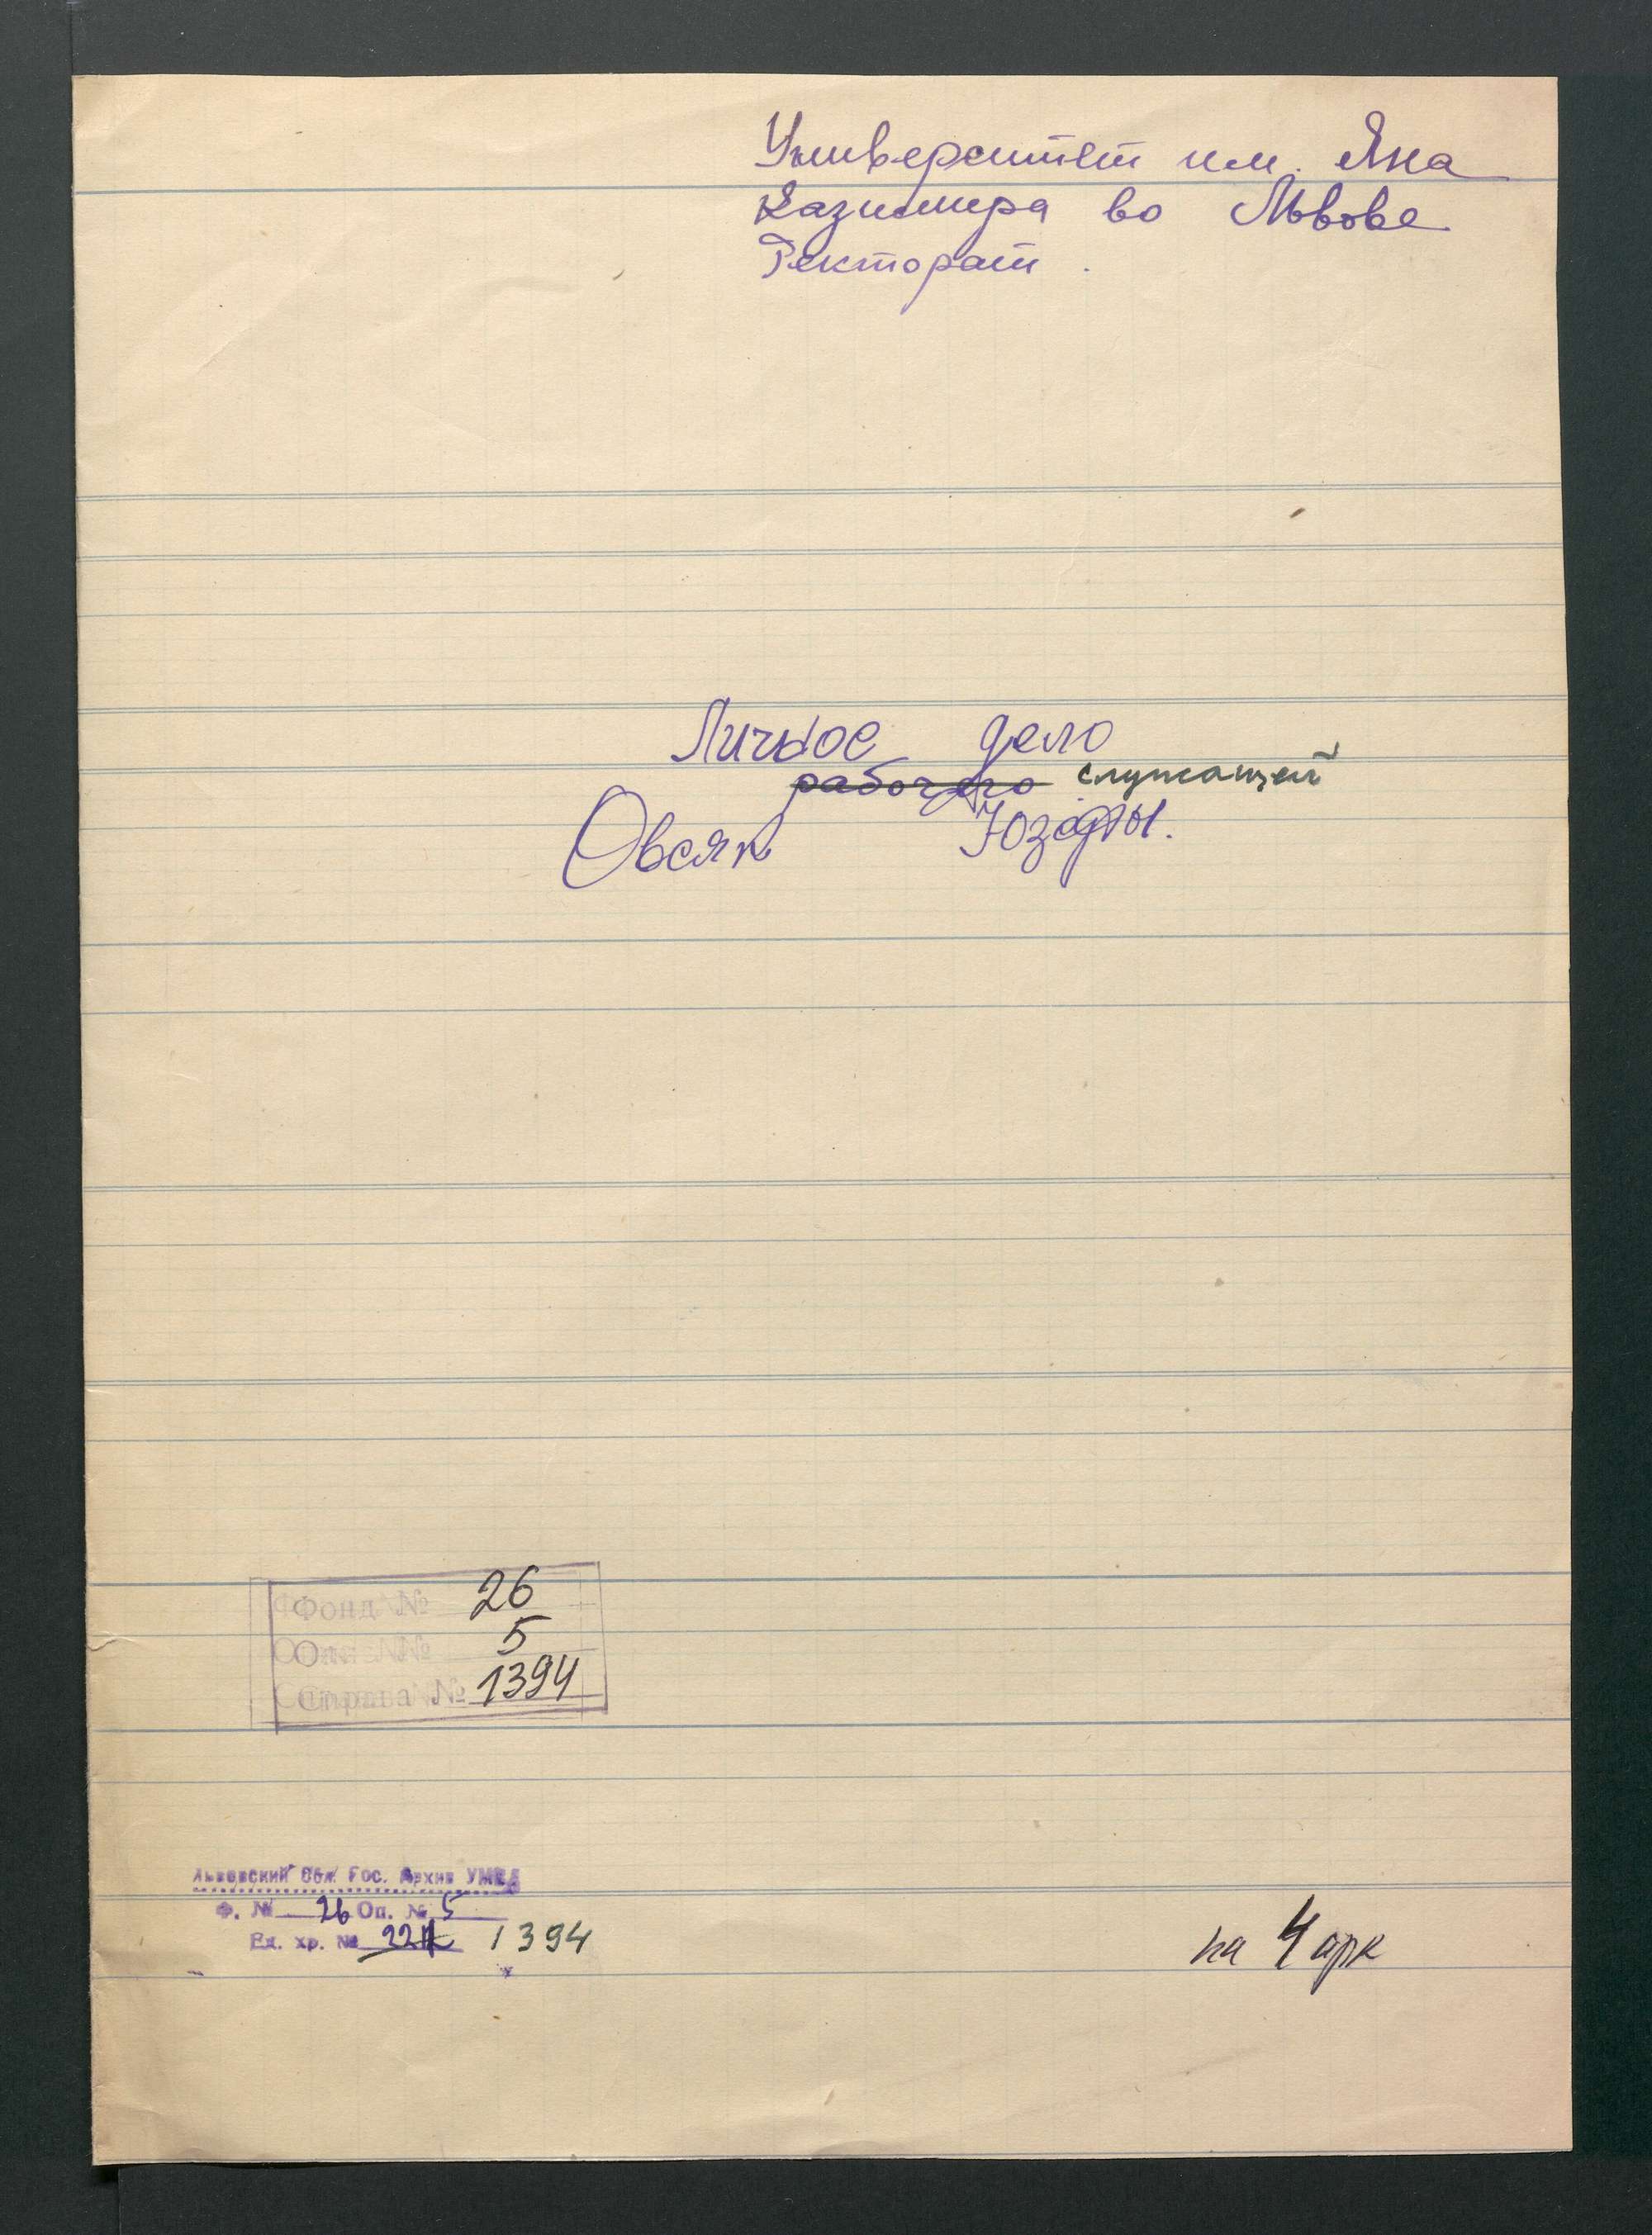 Университет им. Яна
Казимира во Львове
Ректорат.
Личное дело
рабочего служащей
Овсяк Юзефы.
Фонд № 26
Оп. № 5
Справа № 1394
Львовский Обл. Гос. Архив УМВД
Ф. № 26 Оп. № 5
Ед. хр. № 1394
на 4 арк